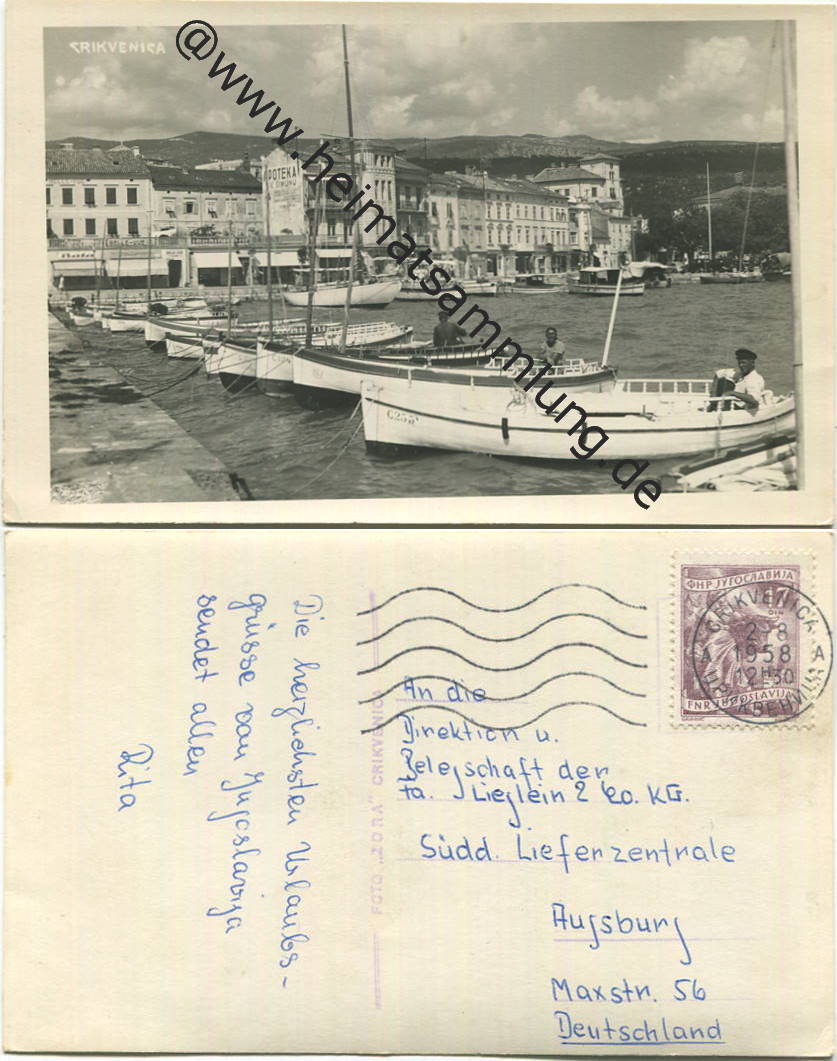 CRIKVENICA
@www.heimatsammlung.de
Bata
C255
Die herzlichsten Urlaubs-
grüsse von Jugoslavija
sendet allen
Rita
FOTO „ZORA” CRIKVENICA
ФНР ЈУГОСЛАВИЈА
DIN
FNR JUGOSLAVIJA
CRIKVENICA
2-8
A 1958 A
12H30
ЦРИКВЕНИЦА
An die
Direktion u.
Belegschaft der
Fa. Lieglein & Co. KG.
Südd. Lieferzentrale
Augsburg
Maxstr. 56
Deutschland